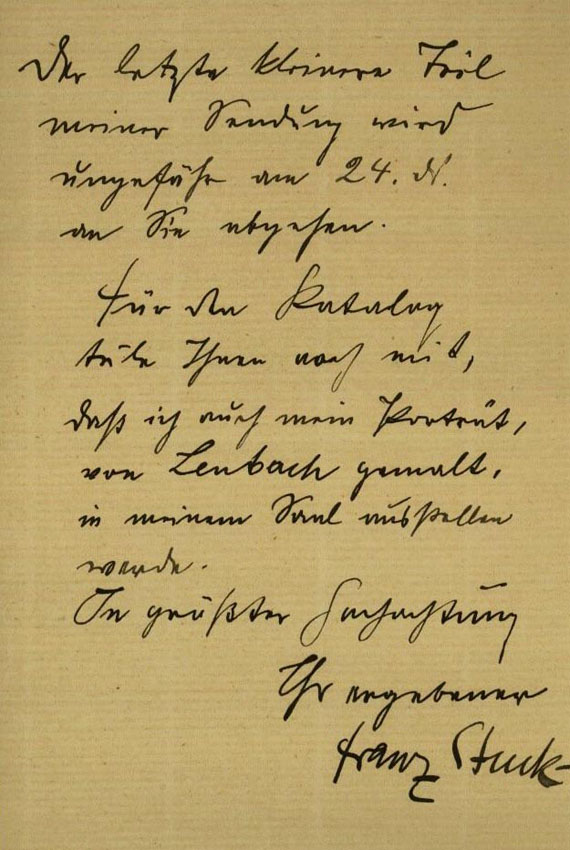 Der letzte kleinere Teil
meiner Sendung wird
ungefähr am 24. ds.
an Sie abgehen.
Für den Katalog
teile Ihnen noch mit,
daß ich auch mein Porträt,
von Lenbach gemalt,
in meinem Saal ausstellen
werde.
In größter Hochachtung
Ihr ergebener
Franz Stuck